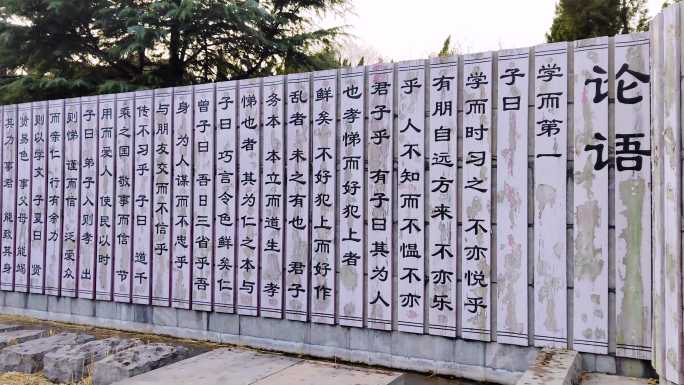 论语
学而第一
子曰
学而时习之 不亦悦乎
有朋自远方来 不亦乐
乎 人不知而不愠不亦
君子乎 有子曰其为人
也孝悌而好犯上者
鲜矣 不好犯上而好作
乱者 未之有也 君子
务本 本立而道生 孝
悌也者 其为仁之本与
子曰 巧言令色鲜矣仁
曾子曰 吾日三省乎吾
身 为人谋而不忠乎
与朋友交而不信乎
传不习乎 子曰 道千
乘之国 敬事而信 节
用而爱人 使民以时
子曰 弟子入则孝 出
则悌 谨而信 泛爱众
而亲仁 行有余力
则以学文 子夏曰 贤
贤易色 事父母 能竭
其力 事君 能致其身